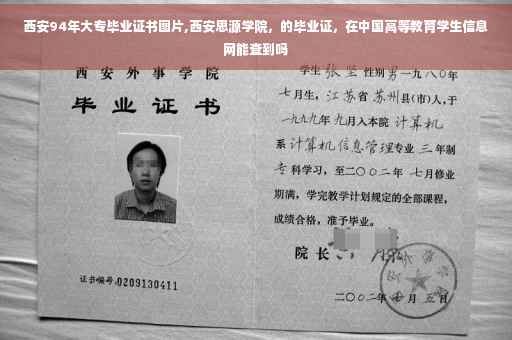 西安94年大专毕业证书图片,西安思源学院，的毕业证，在中国高等教育学生信息
网能查到吗
西安外事学院
毕业证书
证书编号:0209130411
学生 张坚 性别男一九八〇年
七月生，江苏省苏州县(市)人,于
一九九九年九月入本院 计算机
系计算机信息管理专业 三年制
专科学习，至二〇〇二年 七月修业
期满，学完教学计划规定的全部课程，
成绩合格，准予毕业。
院长
二〇〇二年 月五日